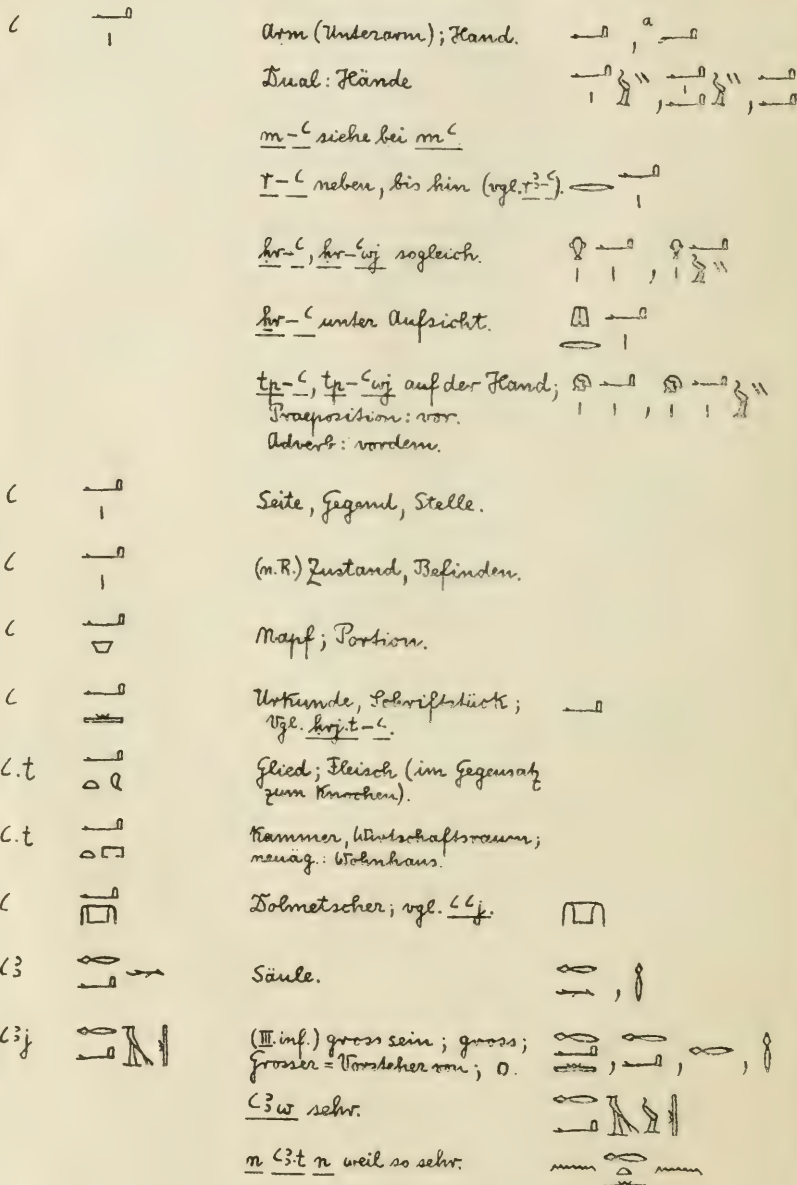 ꜥ Arm (Unterarm); Hand. , a
Dual: Hände , ,
m-ꜥ siehe bei mꜥ
r-ꜥ neben, bis hin (vgl. rꜣ-ꜥ).
ḥr-ꜥ, ḥr-ꜥwj sogleich. ,
ẖr-ꜥ unter Aufsicht.
tp-ꜥ, tp-ꜥwj auf der Hand; ,
Praeposition: vor.
Adverb: vordem.
ꜥ Seite, Gegend, Stelle.
ꜥ (n.R.) Zustand, Befinden.
ꜥ Napf; Portion.
ꜥ Urkunde, Schriftstück;
Vgl. ḥrj.t-ꜥ.
ꜥ.t Glied; Fleisch (im Gegensatz
zum Knochen).
ꜥ.t Kammer, Wirtschaftsraum;
neuäg.: Wohnhaus.
ꜥ Dolmetscher; vgl. ꜥꜥj.
ꜥꜣ Säule. ,
ꜥꜣj (III.inf.) gross sein; gross; , , ,
Grosser = Vorsteher von; O.
ꜥꜣw sehr.
n ꜥꜣ.t n weil so sehr.